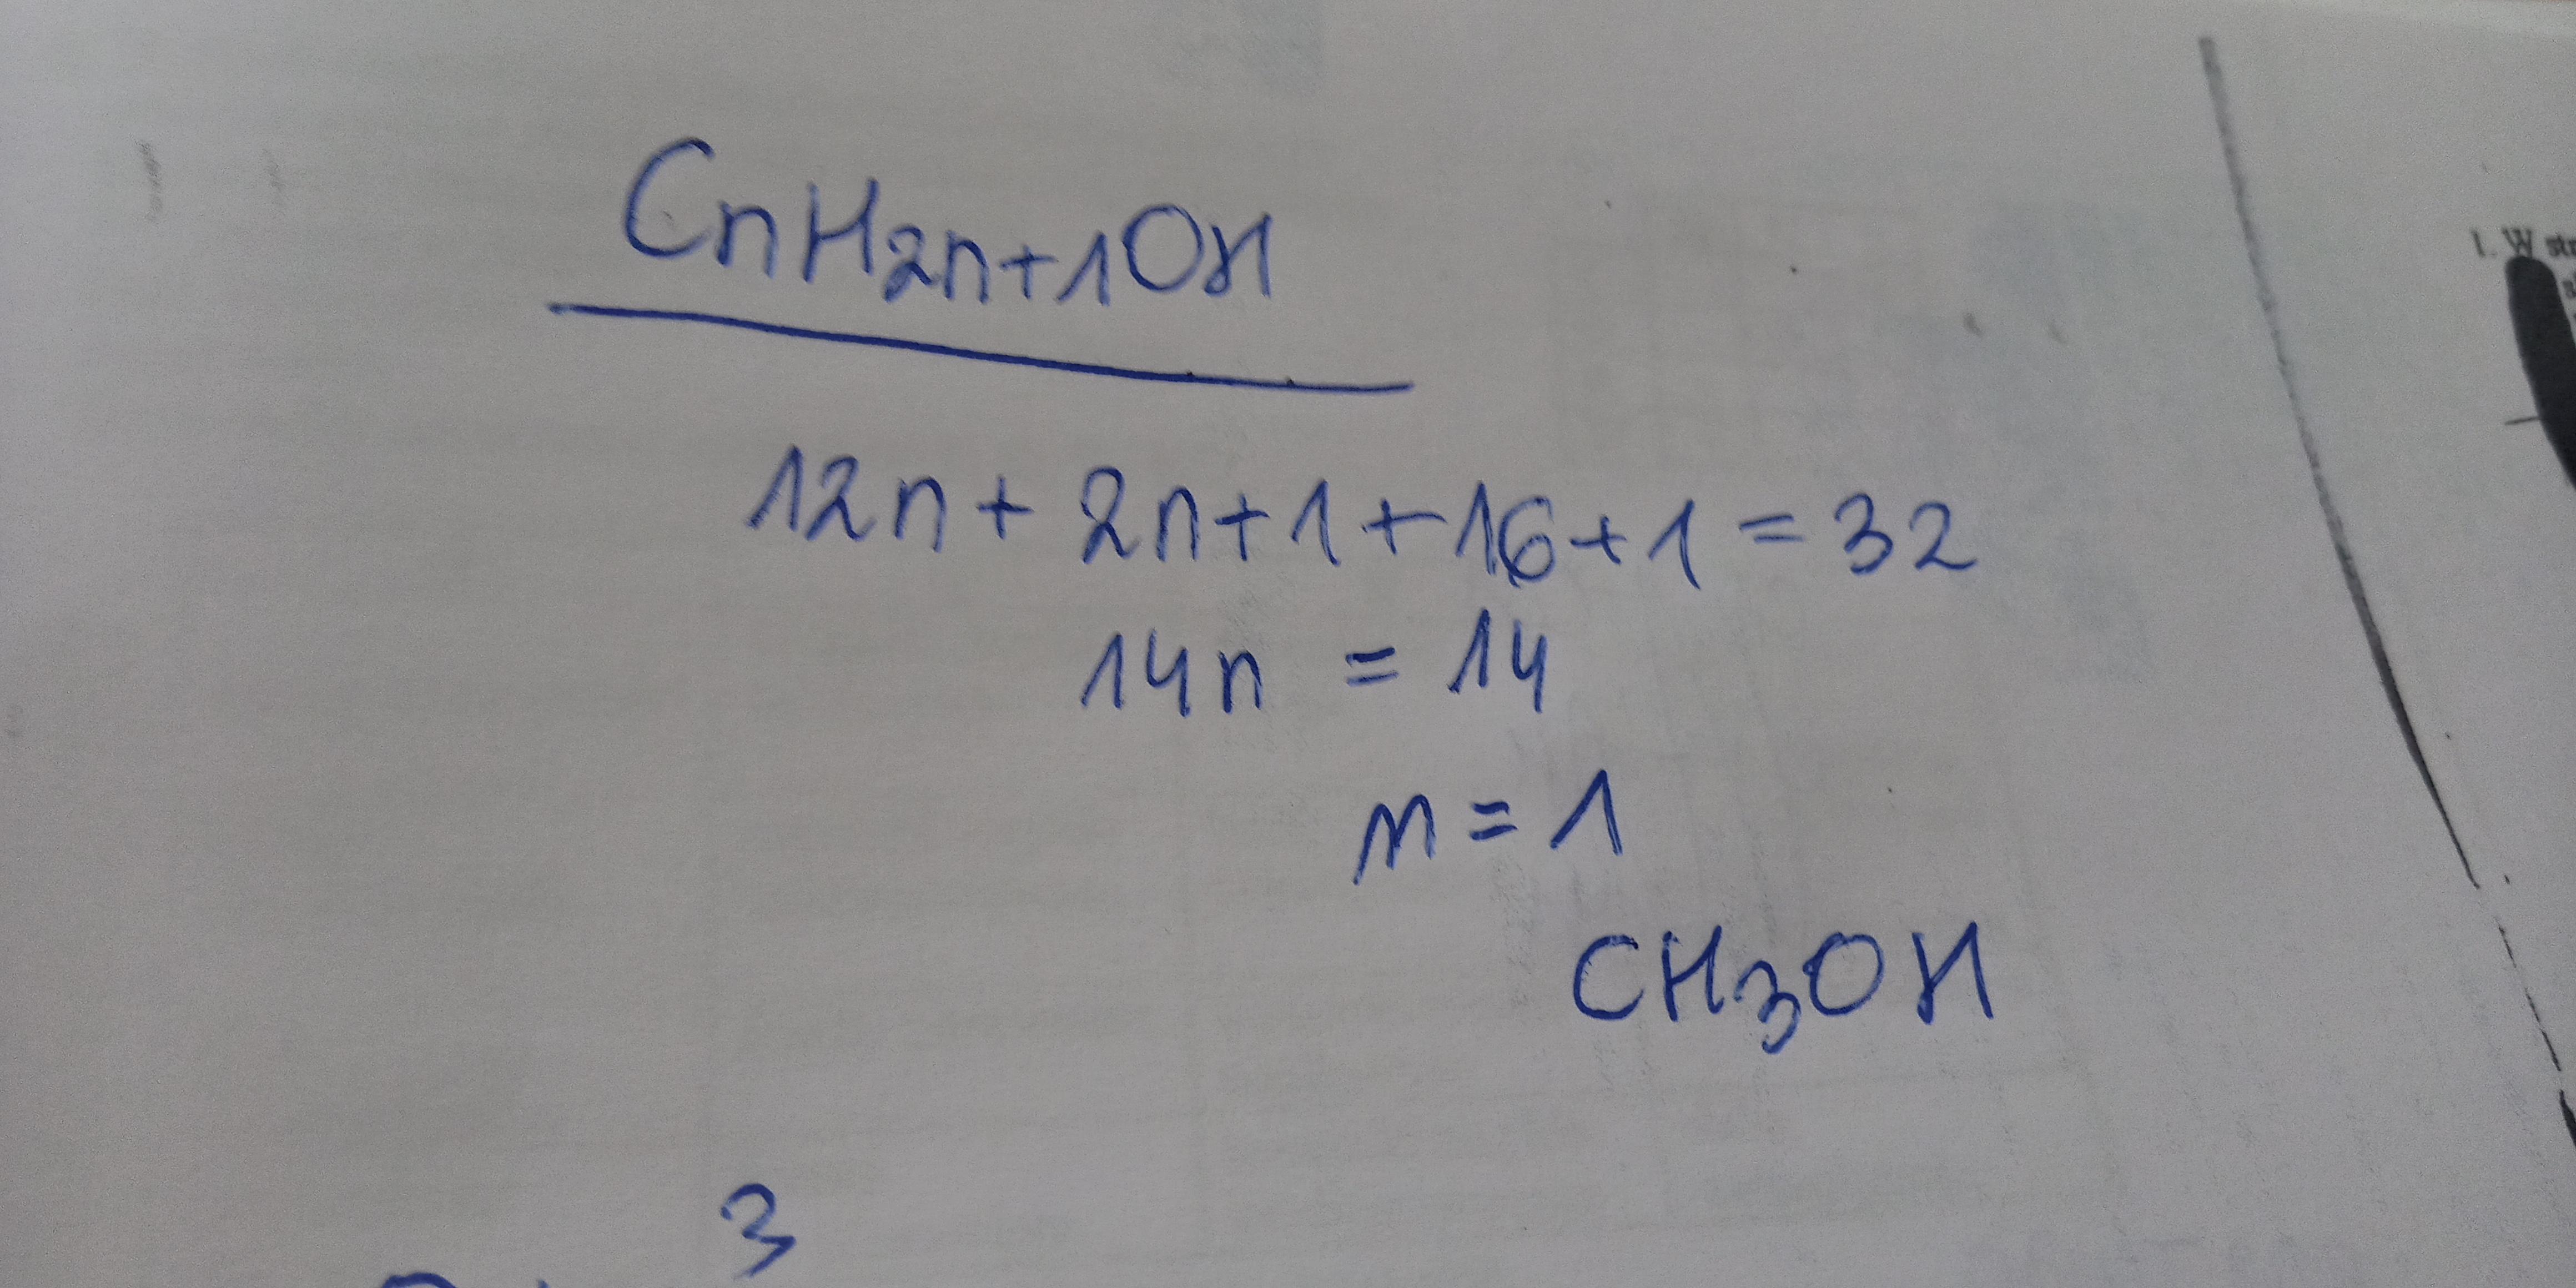 CnH2n+1OH
12n + 2n+1+16+1 = 32
14n = 14
n = 1
CH3OH
3
1. W